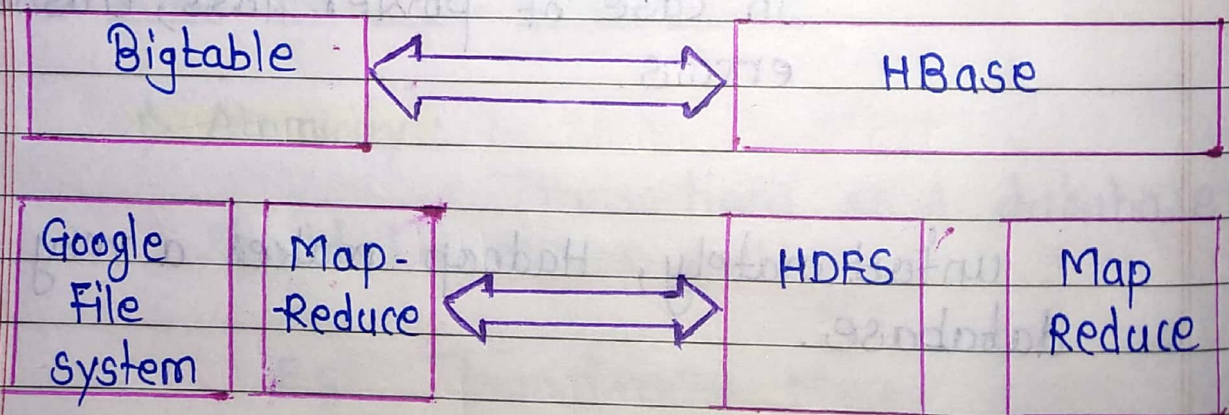 Bigtable
HBase
Google
File
system
Map-
-Reduce
HDFS
Map
Reduce